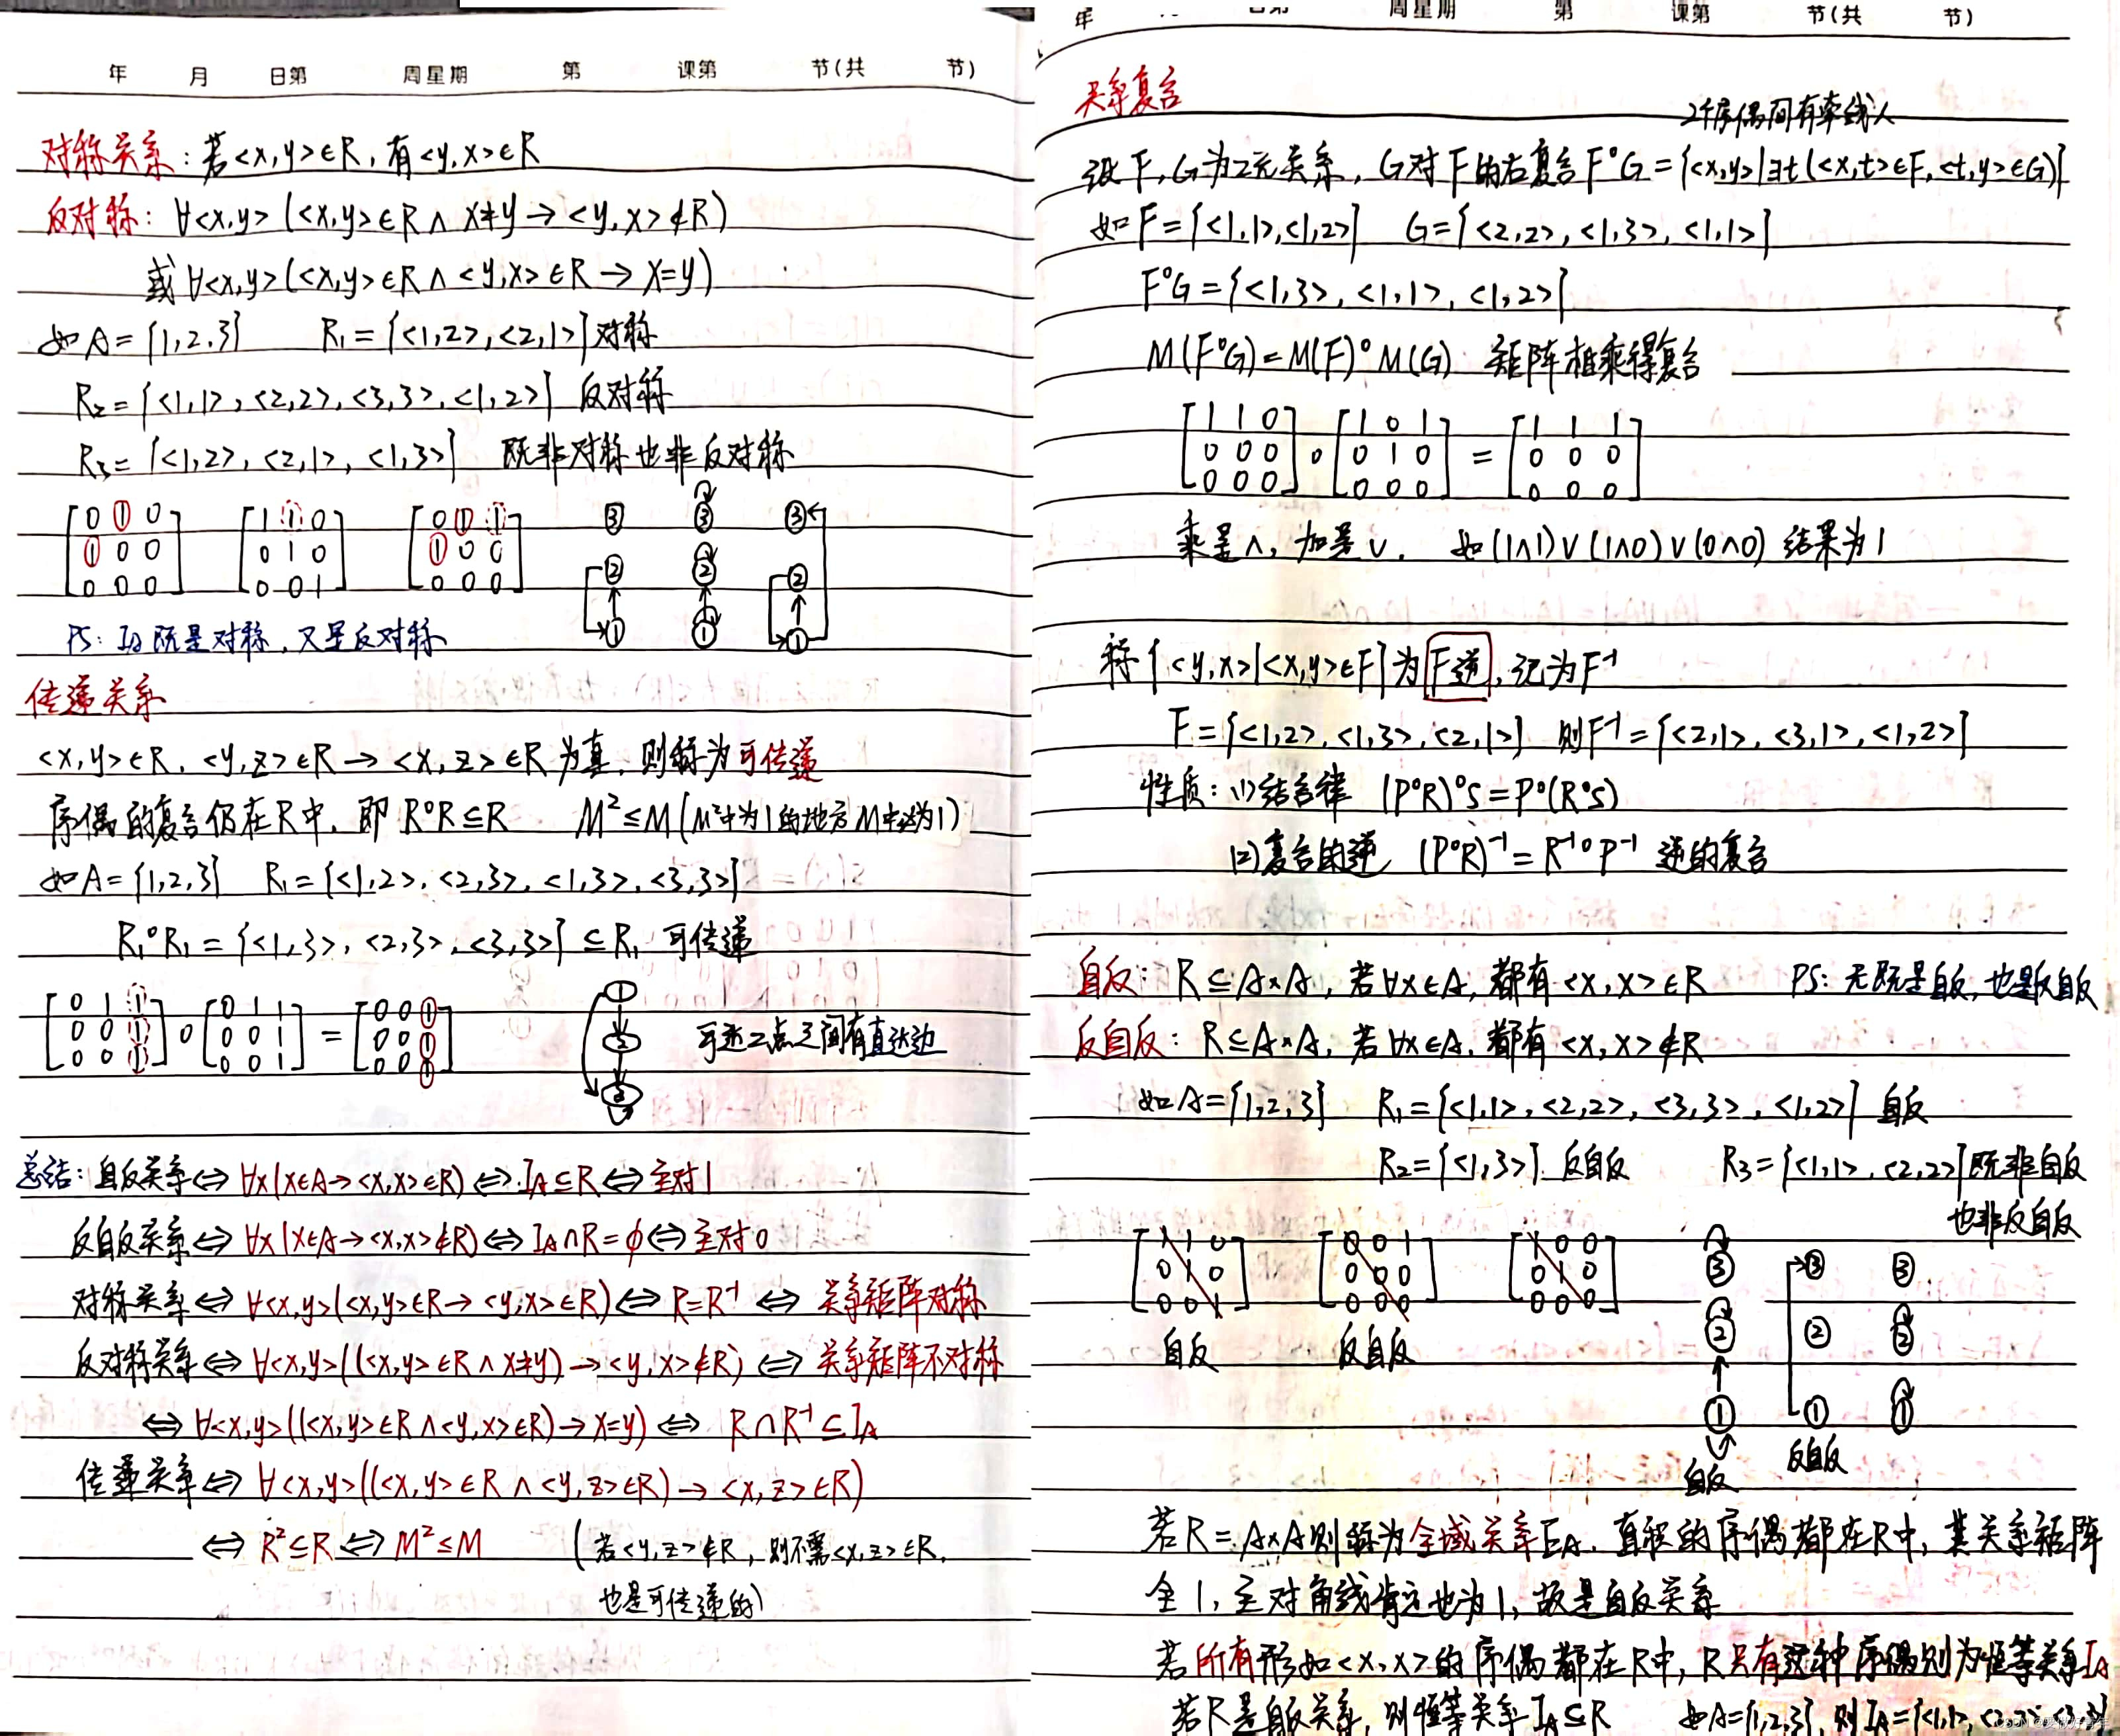 年 月 日第 周星期 第 课第 节(共 节)
对称关系：若<x,y>∈R，有<y,x>∈R
反对称：∀<x,y>(<x,y>∈R ∧ x≠y → <y,x>∉R)
或∀<x,y>(<x,y>∈R ∧ <y,x>∈R → x=y)
如A={1,2,3} R₁={<1,2>,<2,1>}对称
R₂={<1,1>,<2,2>,<3,3>,<1,2>} 反对称
R₃={<1,2>,<2,1>,<1,3>} 既非对称也非反对称
0 1 0 1 1 0 0 1 1 ③ ③ ③
1 0 0 0 1 0 1 0 0 ② ② ②
0 0 0 0 0 1 0 0 0 ① ① ①
PS：既是对称，又是反对称
传递关系
<x,y>∈R，<y,z>∈R → <x,z>∈R 为真，则称为可传递
序偶的复合仍在R中，即 R∘R⊆R M²≤M(M²中为1的地方M中必为1)
如A={1,2,3} R₁={<1,2>,<2,3>,<1,3>,<3,3>}
R₁∘R₁={<1,3>,<2,3>,<3,3>}⊆R₁ 可传递
0 1 1 0 1 1 0 0 1 1
0 0 1 ∘ 0 0 1 = 0 0 1 2 可达二点之间有直达边
0 0 1 0 0 1 0 0 1 3
总结：自反关系⇔∀x(x∈A→<x,x>∈R)⇔I_A⊆R⇔主对1
反自反关系⇔∀x(x∈A→<x,x>∉R)⇔I_A∩R=∅⇔主对0
对称关系⇔∀<x,y>(<x,y>∈R→<y,x>∈R)⇔R=R⁻¹⇔关系矩阵对称
反对称关系⇔∀<x,y>((<x,y>∈R∧x≠y)→<y,x>∉R)⇔关系矩阵不对称
⇔∀<x,y>((<x,y>∈R∧<y,x>∈R)→x=y)⇔R∩R⁻¹⊆I_A
传递关系⇔∀<x,y>((<x,y>∈R∧<y,z>∈R)→<x,z>∈R)
⇔R²⊆R⇔M²≤M (若<y,z>∉R，则不需<x,z>∈R，
也是可传递的)
年 日第 周星期 第 课第 节(共 节)
关系复合
2个序偶间有牵线人
设F,G为2元关系，G对F的右复合F∘G={<x,y>|∃t(<x,t>∈F,<t,y>∈G)}
如F={<1,1>,<1,2>} G={<2,2>,<1,3>,<1,1>}
F∘G={<1,3>,<1,1>,<1,2>}
M(F∘G)=M(F)∘M(G) 矩阵相乘得复合
1 1 0 1 0 1 1 1 1
0 0 0 ∘ 0 1 0 = 0 0 0
0 0 0 0 0 0 0 0 0
乘是∧，加是∨. 如(1∧1)∨(1∧0)∨(0∧0)结果为1
称{<y,x>|<x,y>∈F}为F逆，记为F⁻¹
F={<1,2>,<1,3>,<2,1>} 则F⁻¹={<2,1>,<3,1>,<1,2>}
性质：(1)结合律 (P∘R)∘S=P∘(R∘S)
(2)复合的逆 (P∘R)⁻¹=R⁻¹∘P⁻¹ 逆的复合
自反：R⊆A×A，若∀x∈A，都有<x,x>∈R PS：无既是自反，也是反自反
反自反：R⊆A×A，若∀x∈A，都有<x,x>∉R
如A={1,2,3} R₁={<1,1>,<2,2>,<3,3>,<1,2>} 自反
R₂={<1,3>} 反自反 R₃={<1,1>,<2,2>}既非自反
也非反自反
1 1 0 0 0 1 1 0 0 ③ ③ ③
0 1 0 0 0 0 0 1 0 ② ② ②
0 0 1 0 0 0 0 0 0 ① ① ①
自反 反自反 自反 反自反
若R=A×A则称为全域关系E_A．直积的序偶都在R中，其关系矩阵
全1，主对角线肯定也为1，故是自反关系
若所有形如<x,x>的序偶都在R中，R只有这种序偶则为恒等关系I_A
若R是自反关系，则恒等关系I_A⊆R 如A={1,2,3},则I_A={<1,1>,<2,2>,<3,3>}